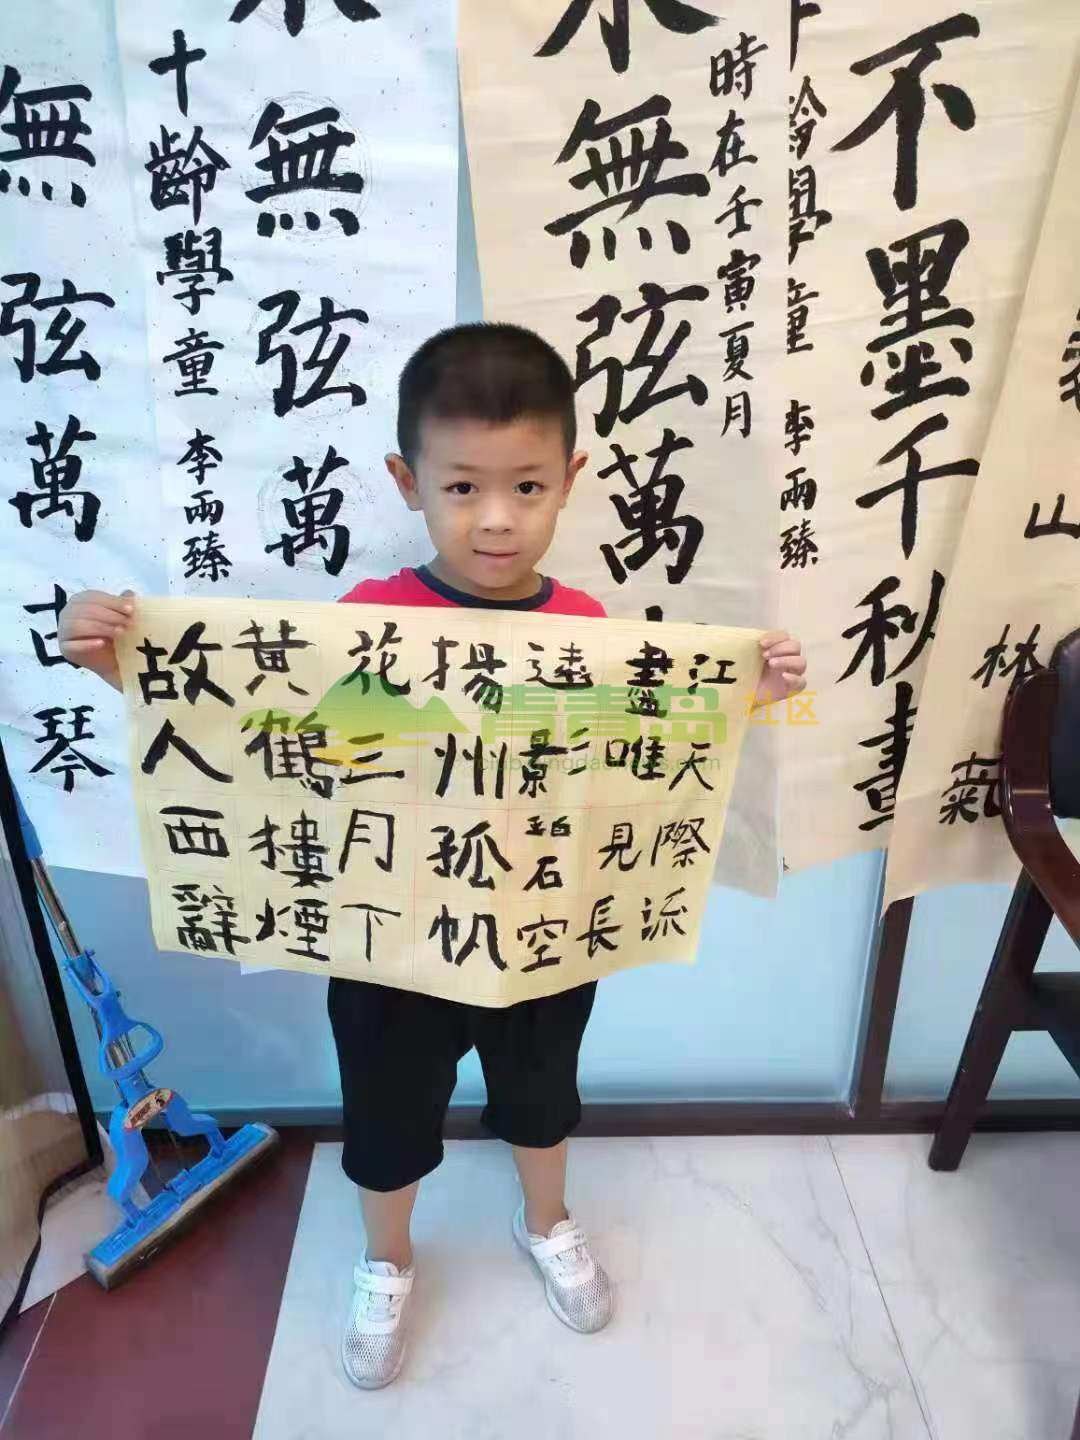 無弦萬古琴
十齡學童 李雨臻
無弦萬
無弦萬
時在壬寅夏月
齡學童 李雨臻
不墨千秋畫
山林氣
故人西辭
黄鶴樓煙
花三月下
揚州孤帆
遠影碧空
盡唯見長
江天際流
青青岛社区
club.qingdaonews.com